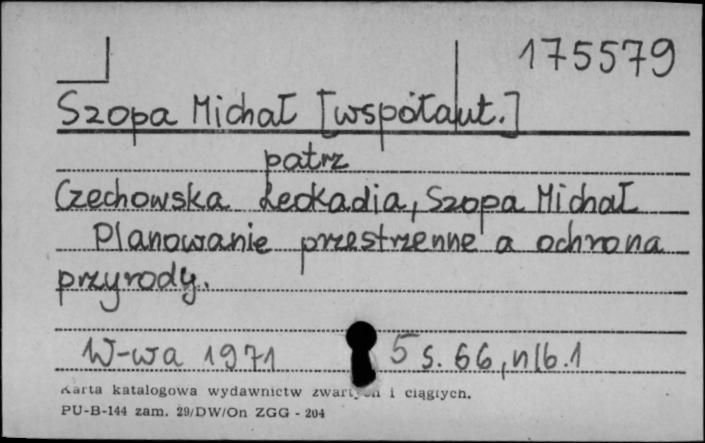 175579
Szopa Michał [współaut.]
patrz
Czechowska Leokadia, Szopa Michał
Planowanie przestrzenne a ochrona
przyrody.
W-wa 1971 5 s. 66, nlb. 1
Karta katalogowa wydawnictw zwartych i ciągłych.
PU-B-144 zam. 29/DW/On ZGG - 204